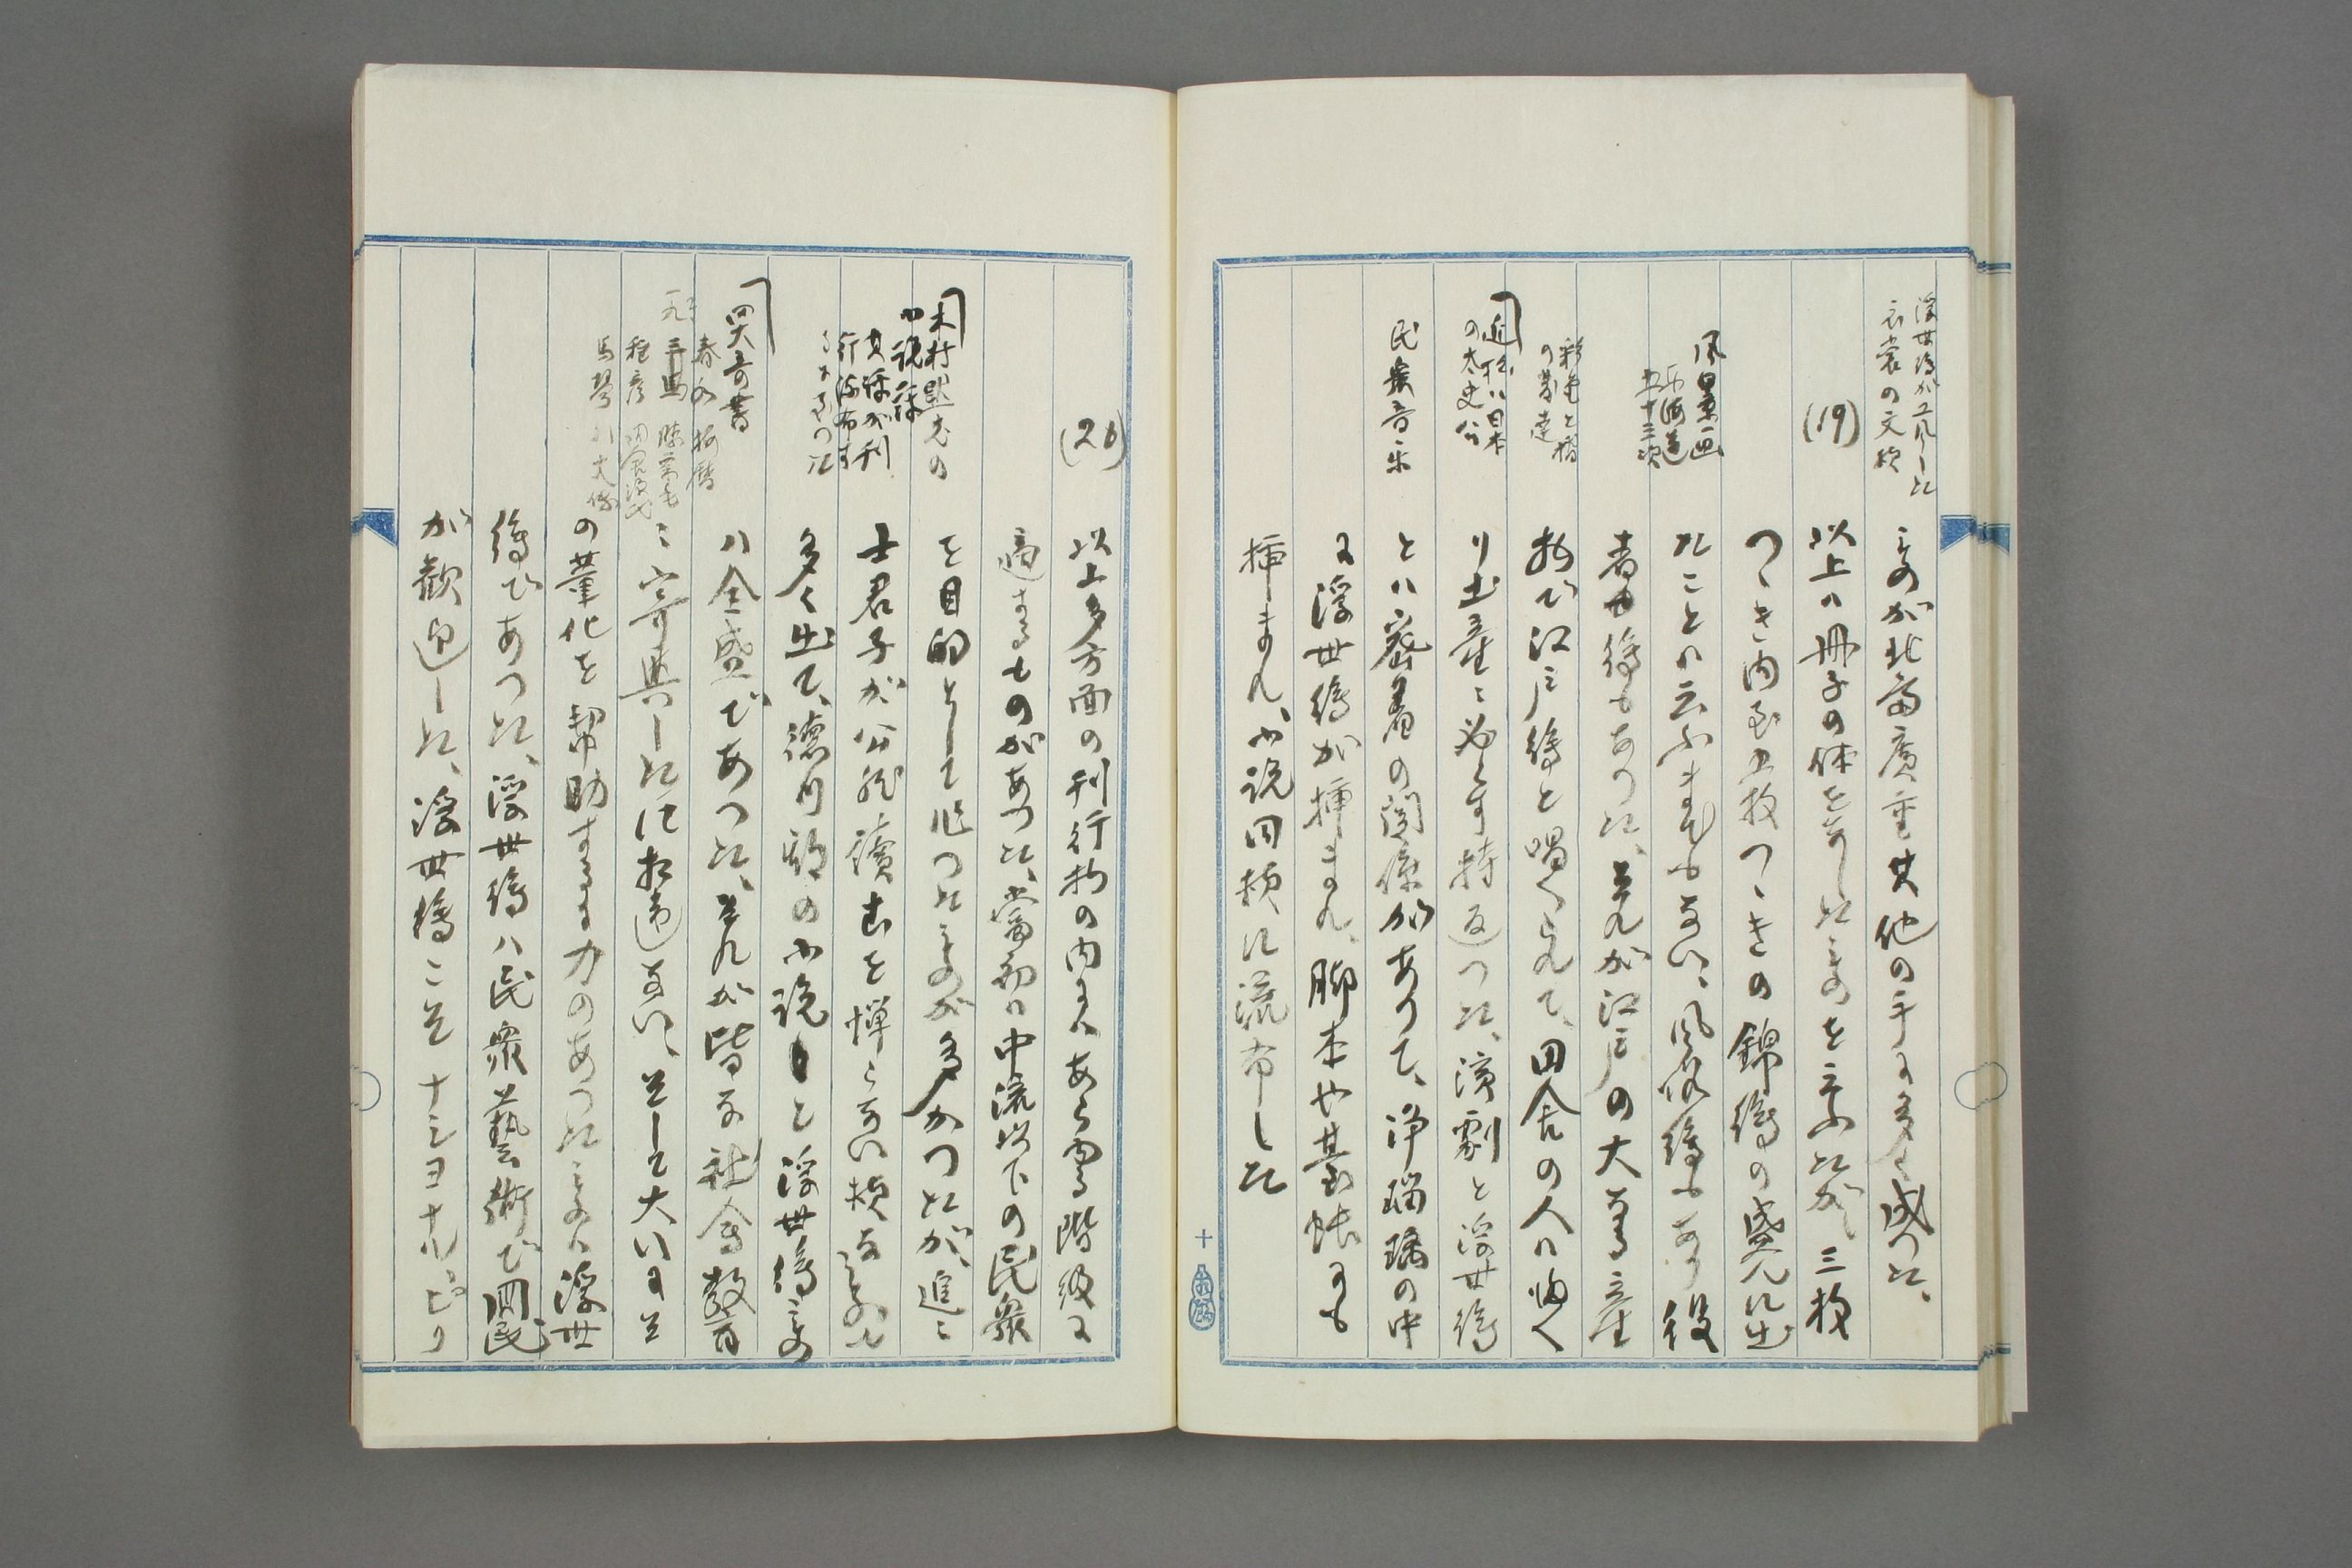 浮世絵が工風した
衣裳の文様
ものが北斎廣重其他の手に多く成つた、
(19)
以上ハ冊子の体を成したものを云ふたが、三枚
つゝき内至五枚つゝきの錦繪の盛んに出
風景画
東海道
五十三次
たことハ云ふまでもない、風俗繪もあり役
者繪もあつた、それが江戸の大なる産
彩色と摺
の発達
物で江戸繪と唱へられて、田舎の人ハ
近松ハ日本
の太史公
り土産に必らす持返つた、演劇と浮世繪
民衆音楽
とハ密着の関係があつて、浄瑠璃の中
に浮世繪が挿まれ、脚本や臺帳にも
挿まれ、小説同様に流布した
十
(20)
以上多方面の刊行物の内にハあらゆる階級に
適するものがあつた、當初ハ中流以下の民衆
木村黙老の
小説評
其評が刊
行流布す
るに至つた
を目的として作つたものが多かつたが、進んで
士君子が公然讀むを憚らない様なものも
多く出て、徳川期の小説と浮世繪
四大奇書
ハ全盛であつた、それが皆な社会教育
春水 梅暦
一九 三馬 膝栗毛
種彦 田舎源氏
馬琴 八犬傳
に寄与したに相違ない、そして大いに
の薫化を幇助する力のあつたものハ浮世
繪であつた、浮世繪ハ民衆藝術で国民
が歓迎した、浮世繪こそナショナルピク